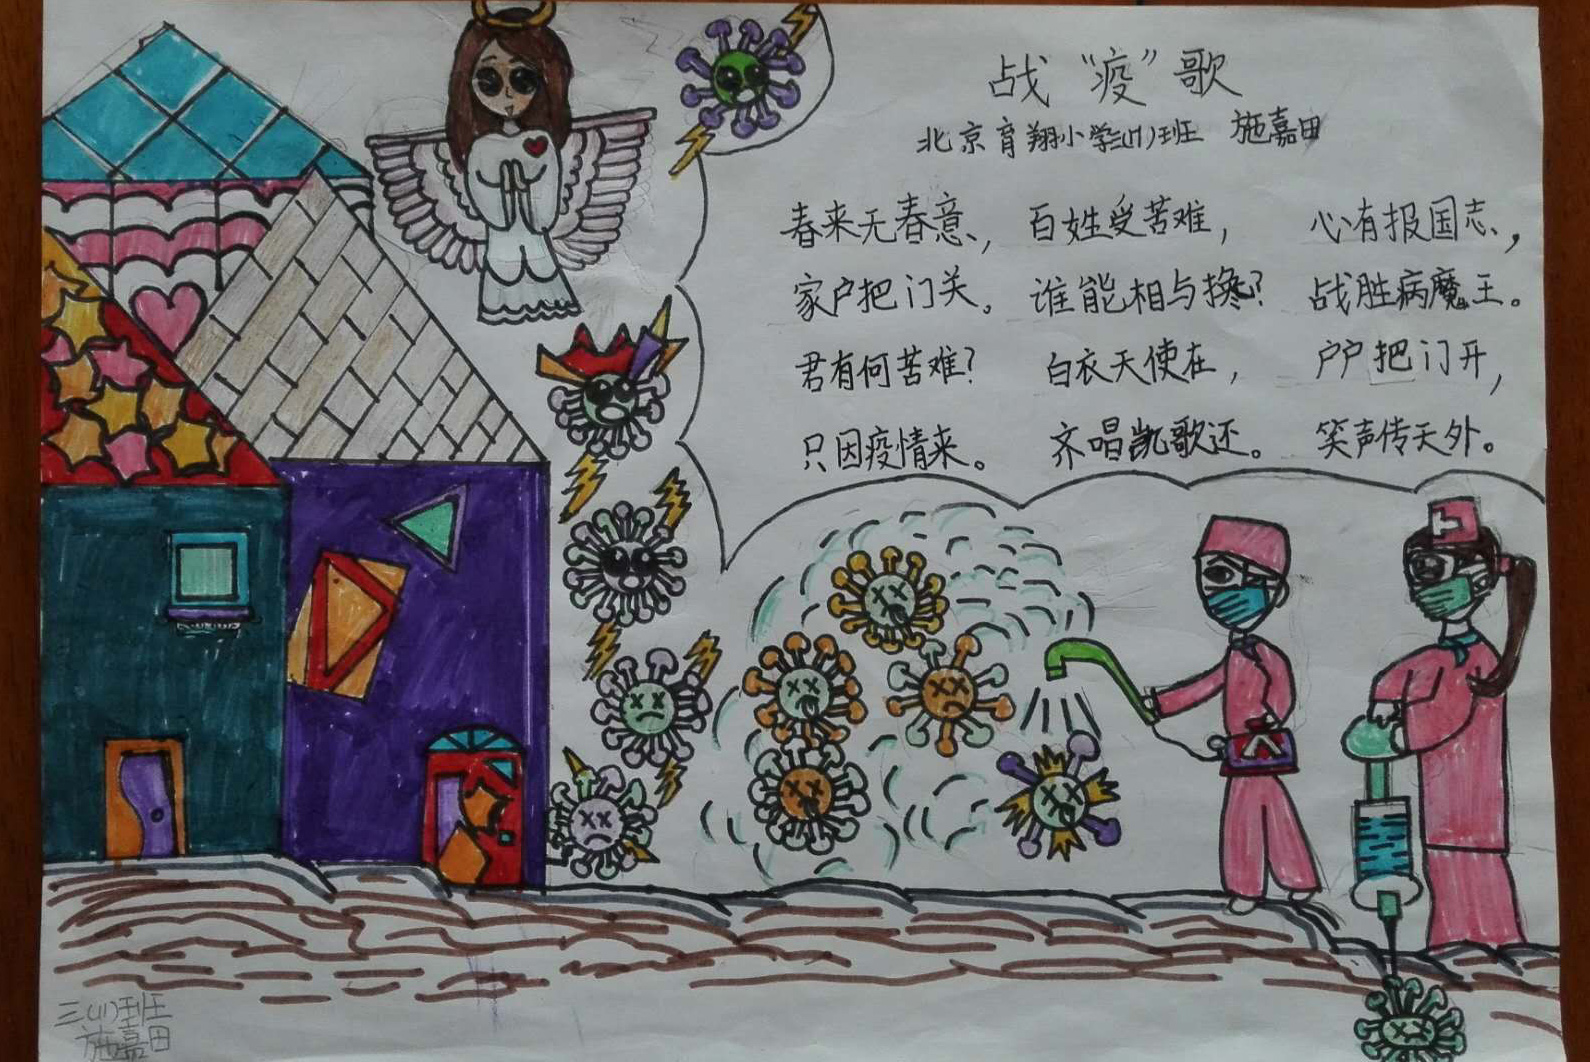 战“疫”歌
北京育翔小学三(11)班 施嘉田
春来无春意, 百姓受苦难, 心有报国志,
家户把门关。 谁能相与搀? 战胜病魔王。
君有何苦难? 白衣天使在, 户户把门开,
只因疫情来。 齐唱凯歌还。 笑声传天外。
三(11)班
施嘉田